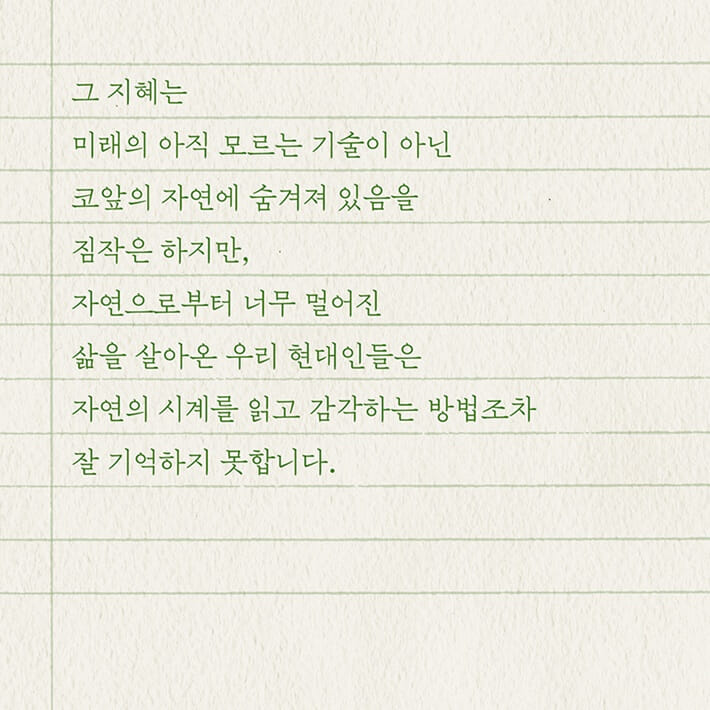 그 지혜는
미래의 아직 모르는 기술이 아닌
코앞의 자연에 숨겨져 있음을
짐작은 하지만,
자연으로부터 너무 멀어진
삶을 살아온 우리 현대인들은
자연의 시계를 읽고 감각하는 방법조차
잘 기억하지 못합니다.